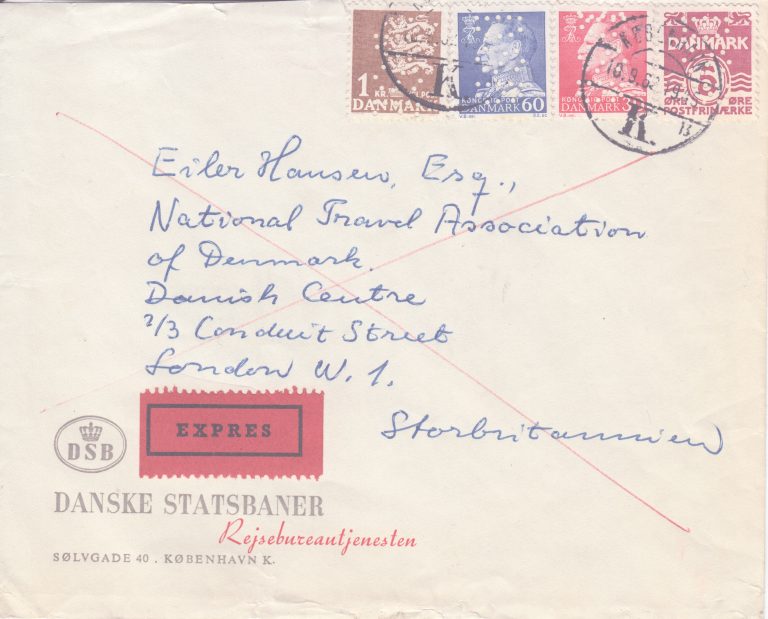 1
KR.
DANMARK
KONGELIG POST
DANMARK 60
KONGELIG POST
DANMARK
DANMARK
5
ØRE ØRE
POSTFRIMÆRKE
10.9.62
K.
B
Eiler Hansen, Esq.,
National Travel Association
of Denmark.
Danish Centre
2/3 Conduit Street
London W. 1.
Storbritannien
EXPRES
DSB
DANSKE STATSBANER
Rejsebureautjenesten
SØLVGADE 40 . KØBENHAVN K.